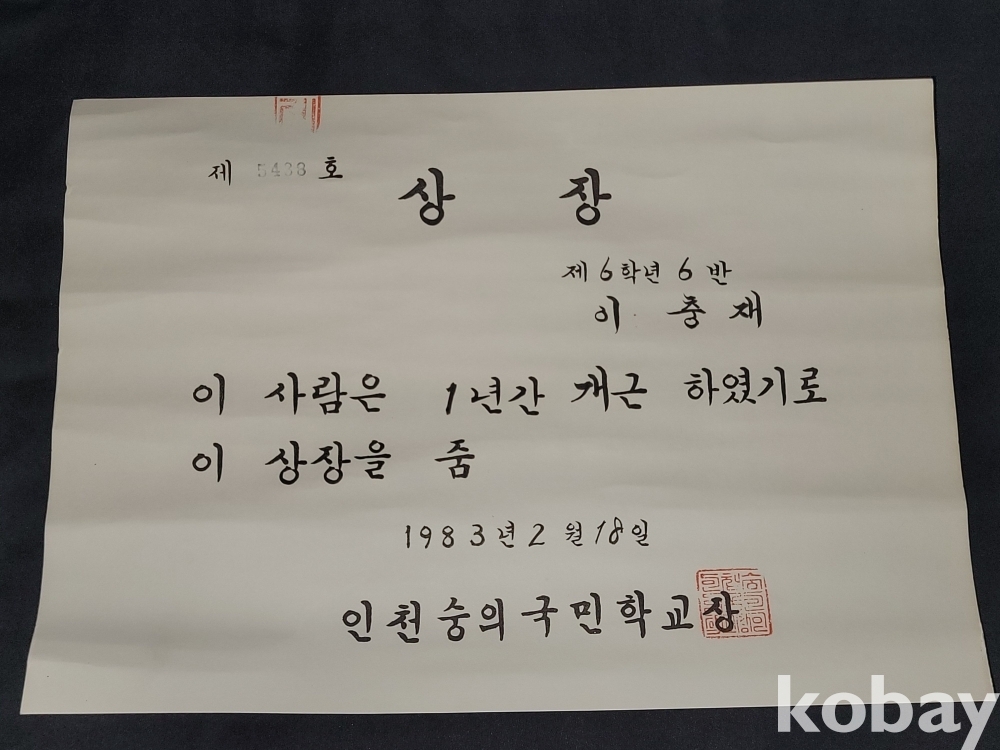 제 5438 호
상 장
제 6 학년 6 반
이 충 재
이 사람은 1년간 개근 하였기로
이 상장을 줌
1983년 2월 18일
인천숭의국민학교장
kobay